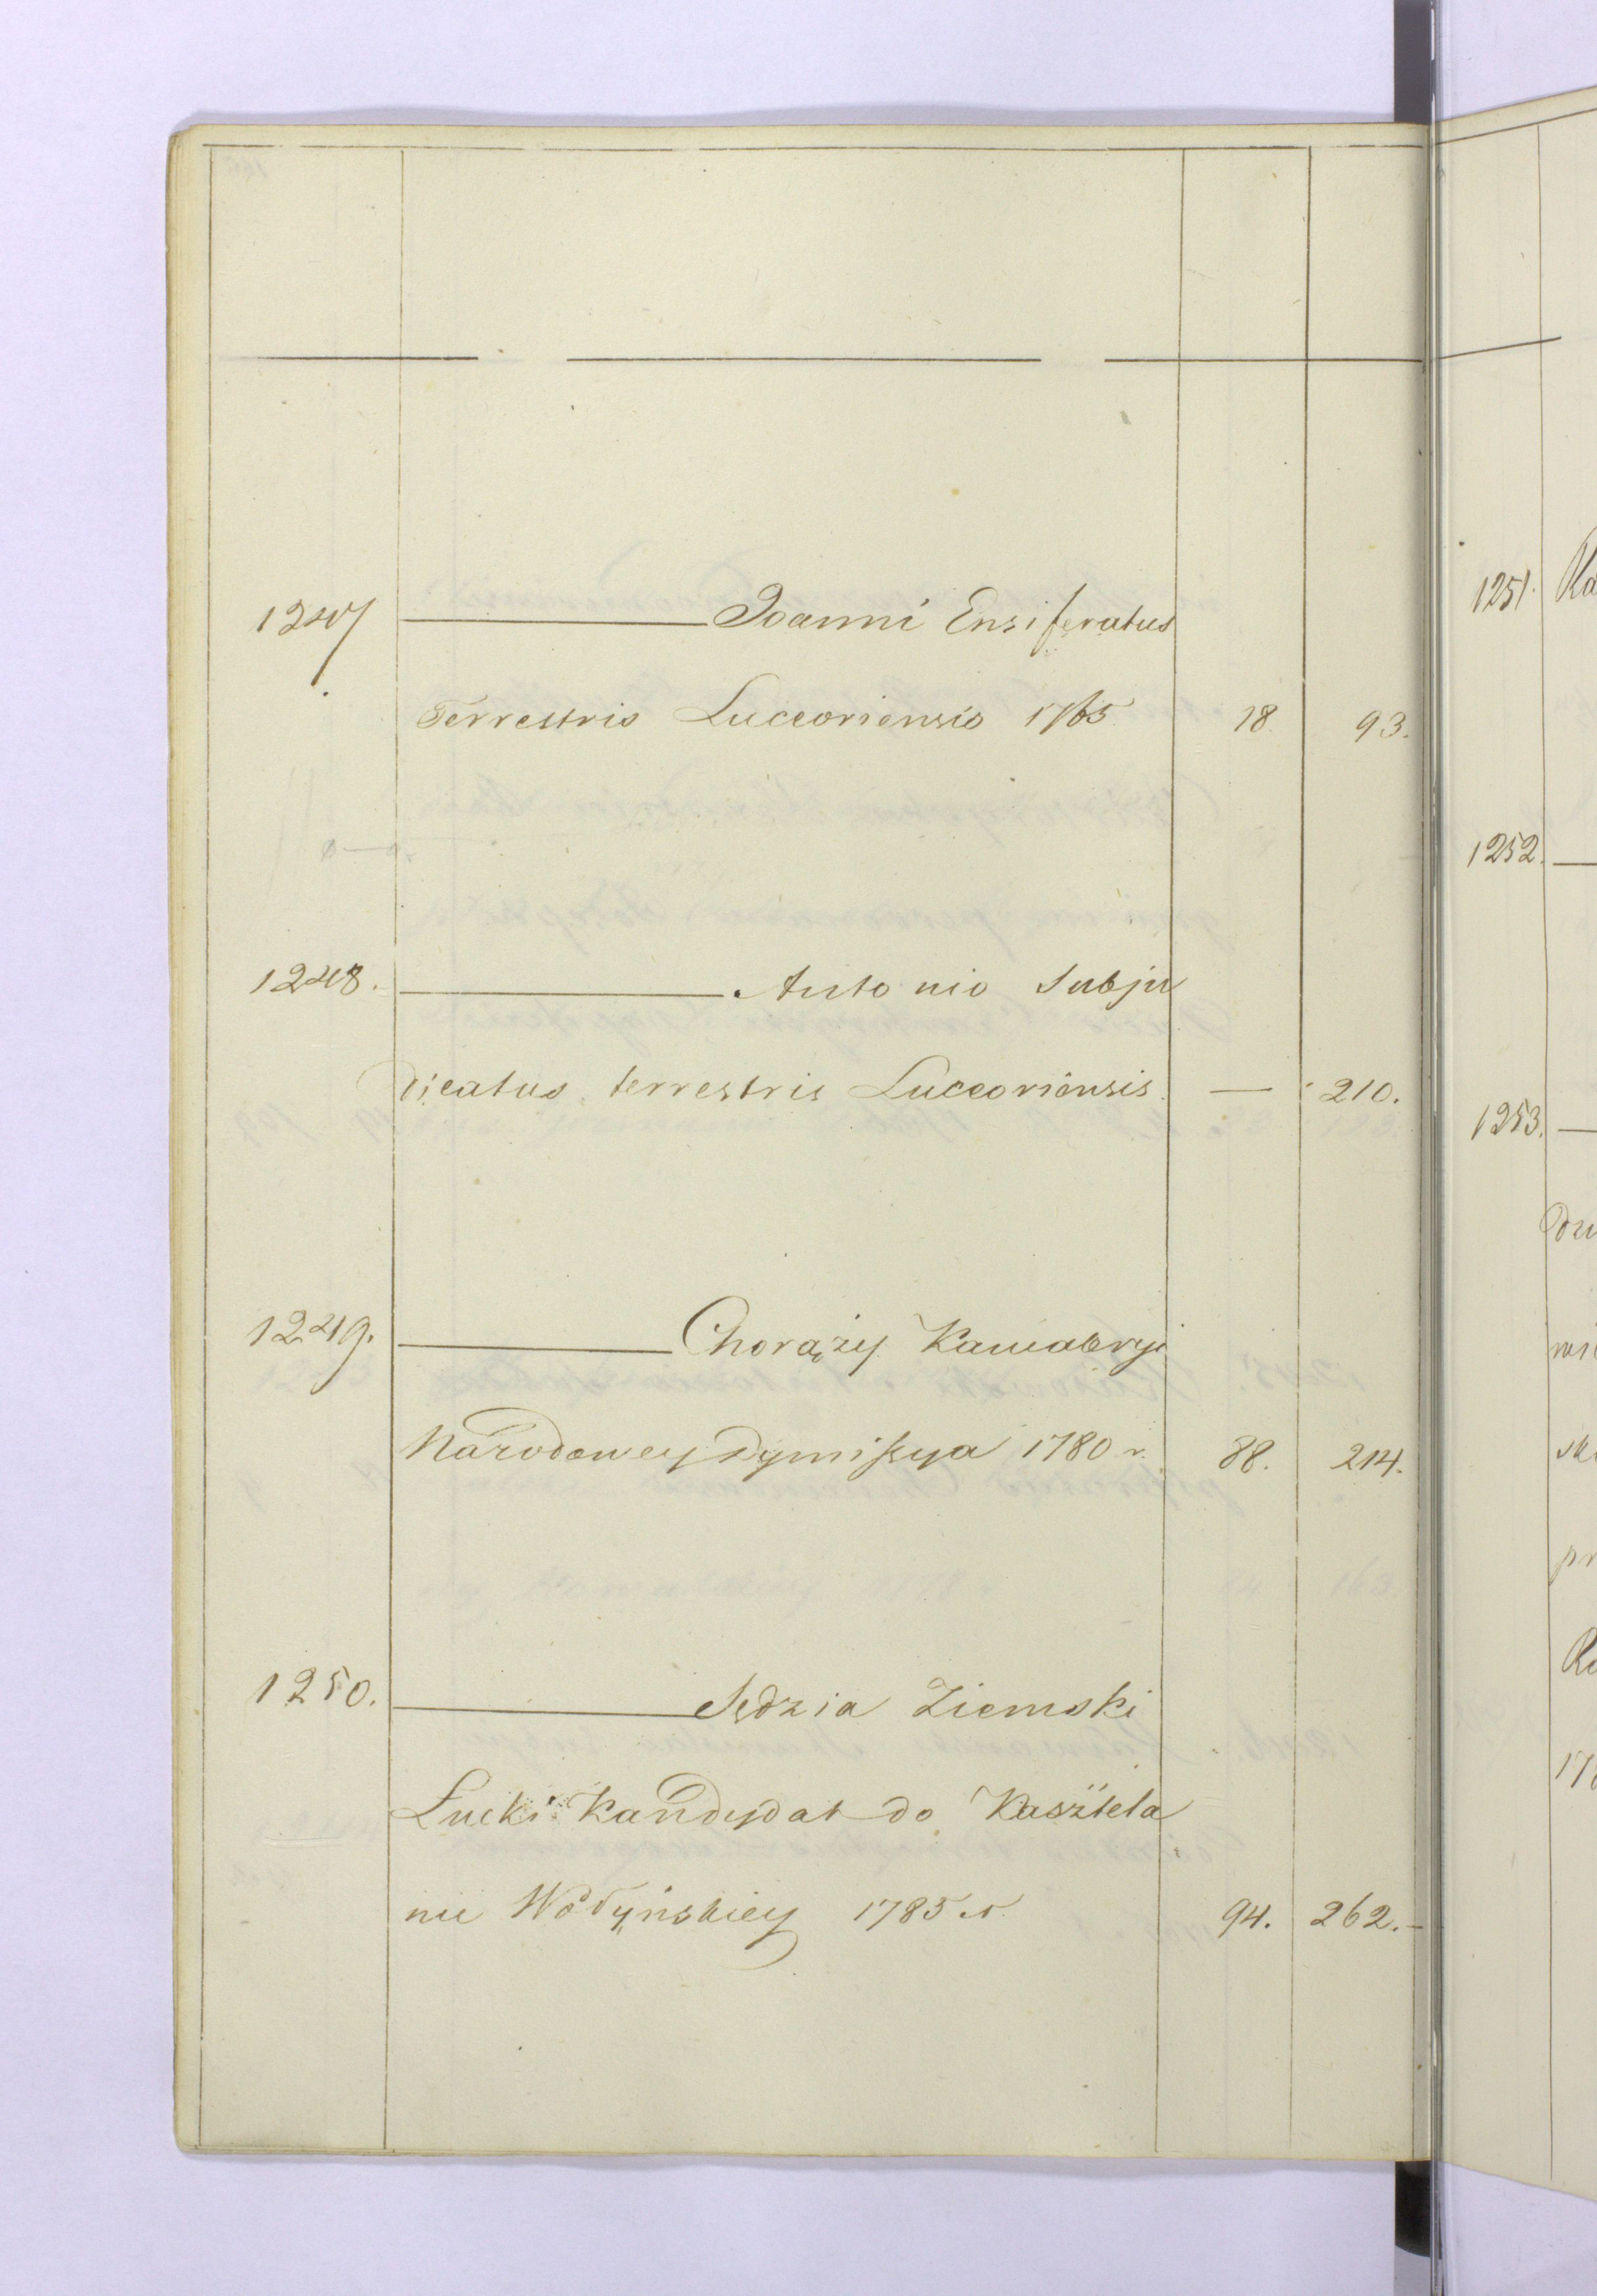 1247. ——— Joanni Ensiferatus
Terrestris Luceoriensis 1765 18. 93.
1248. ——— Antonio Subju
dicatus terrestris Luceoriensis — 210.
1249. ——— Chorąży Kawaleryi
Narodowey dymissya 1780 r. 88. 214.
1250. ——— Sędzia Ziemski
Łucki Kandydat do Kasztela
nii Wołyńskiey 1785 r. 94. 262.
1251.
1252.
1253.